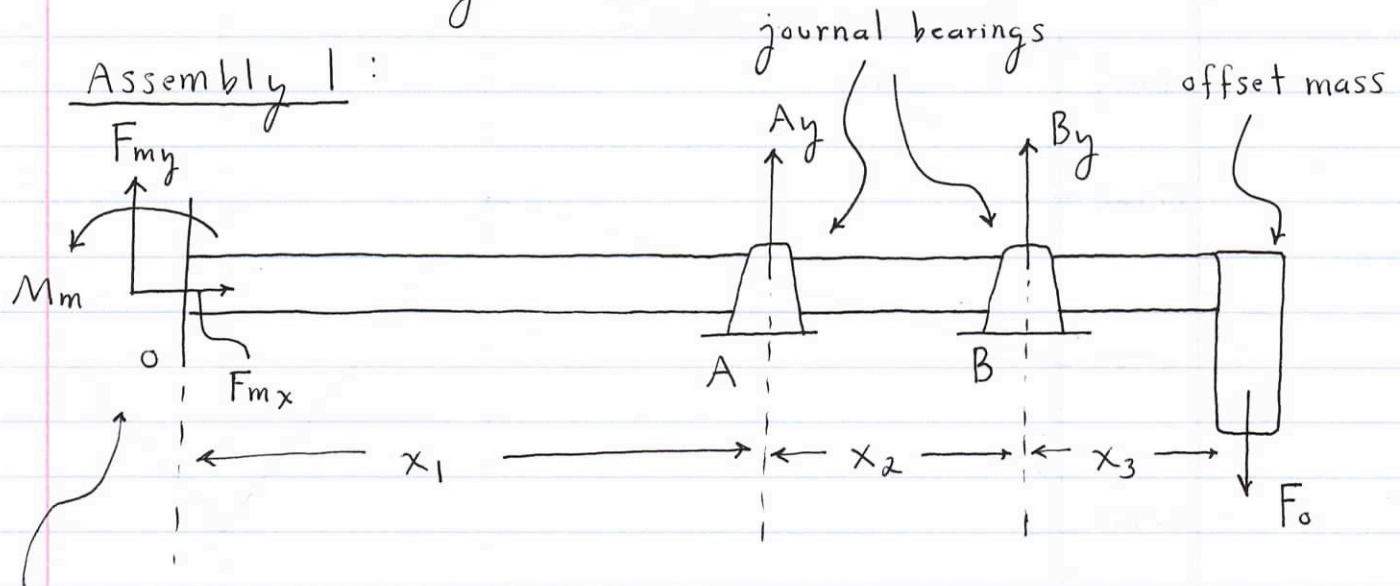 journal bearings
Assembly 1 :
offset mass
Fmy
Ay
By
Mm
O
Fmx
A
B
x1
x2
x3
Fo